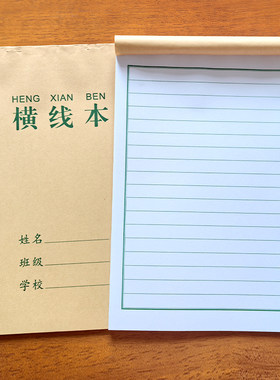 HENG XIAN BEN
横线本
姓名
班级
学校